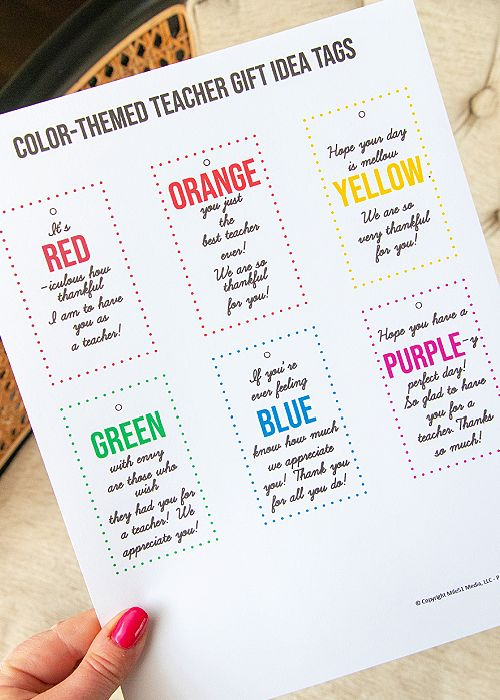 COLOR-THEMED TEACHER GIFT IDEA TAGS
It's
RED
-iculous how
thankful
I am to have
you as
a teacher!
ORANGE
you just
the
best teacher
ever!
We are so
thankful
for you!
Hope your day
is mellow
YELLOW.
We are so
very thankful
for you!
GREEN
with envy
are those who
wish
they had you for
a teacher! We
appreciate you!
If you're
ever feeling
BLUE
know how much
we appreciate
you! Thank you
for all you do!
Hope you have a
PURPLE-y
perfect day!
So glad to have
you for a
teacher. Thanks
so much!
© Copyright Mile51 Media, LLC - P